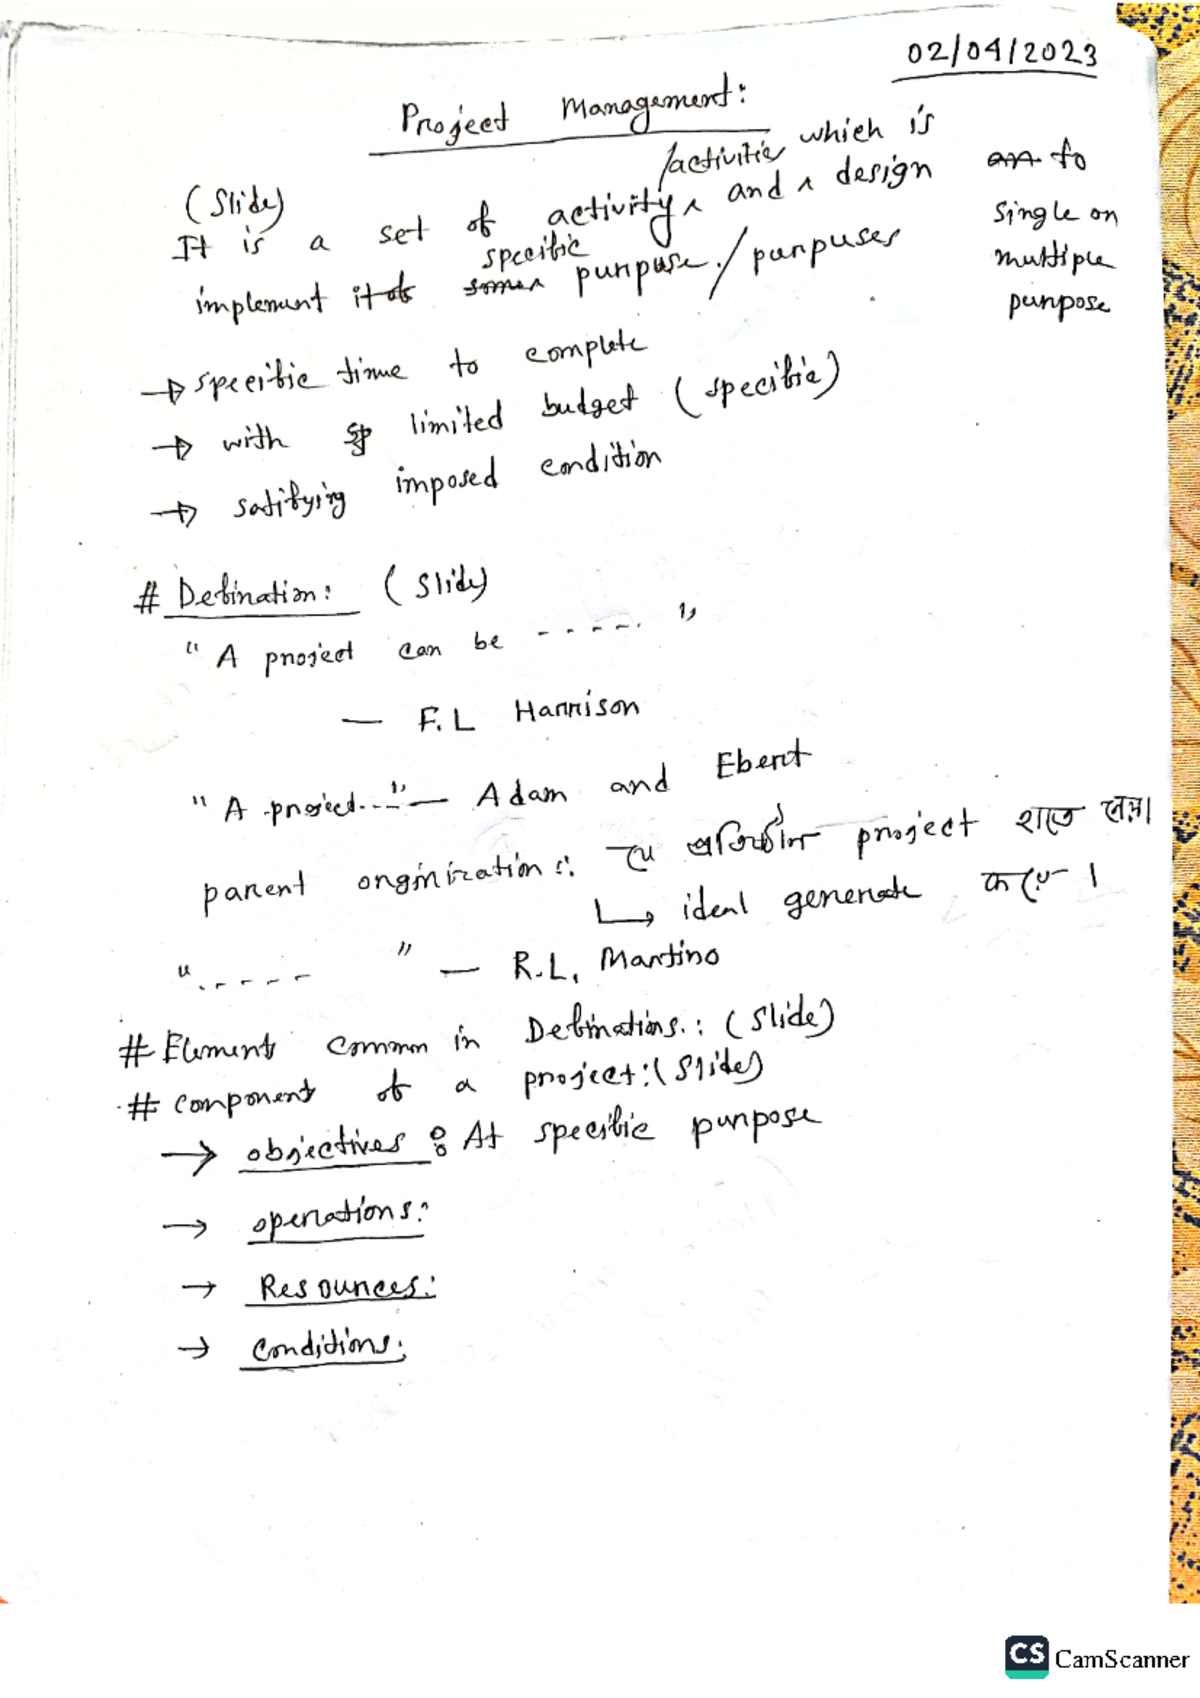 02/04/2023
Project Management:
(Slide)
/activities which is
It is a set of activity ^ and ^ design an to
implement it specific purpose. / purpuses
single or
multiple
purpose
→ specific time to complete
→ with limited budget (specific)
→ satifying imposed condition
# Defination: (Slide)
" A project can be ----- "
— F.L Harrison
" A project..--" — Adam and Ebert
parent orginization :: যে প্রতিষ্ঠান project হাতে নেয়।
↳ ideal generate করে।
" ----- " — R.L. Martino
# Elements common in Definations.: (Slide)
# Component of a project: (Slide)
→ objectives : At specific purpose
→ operations:
→ Resources:
→ Conditions:
CS CamScanner